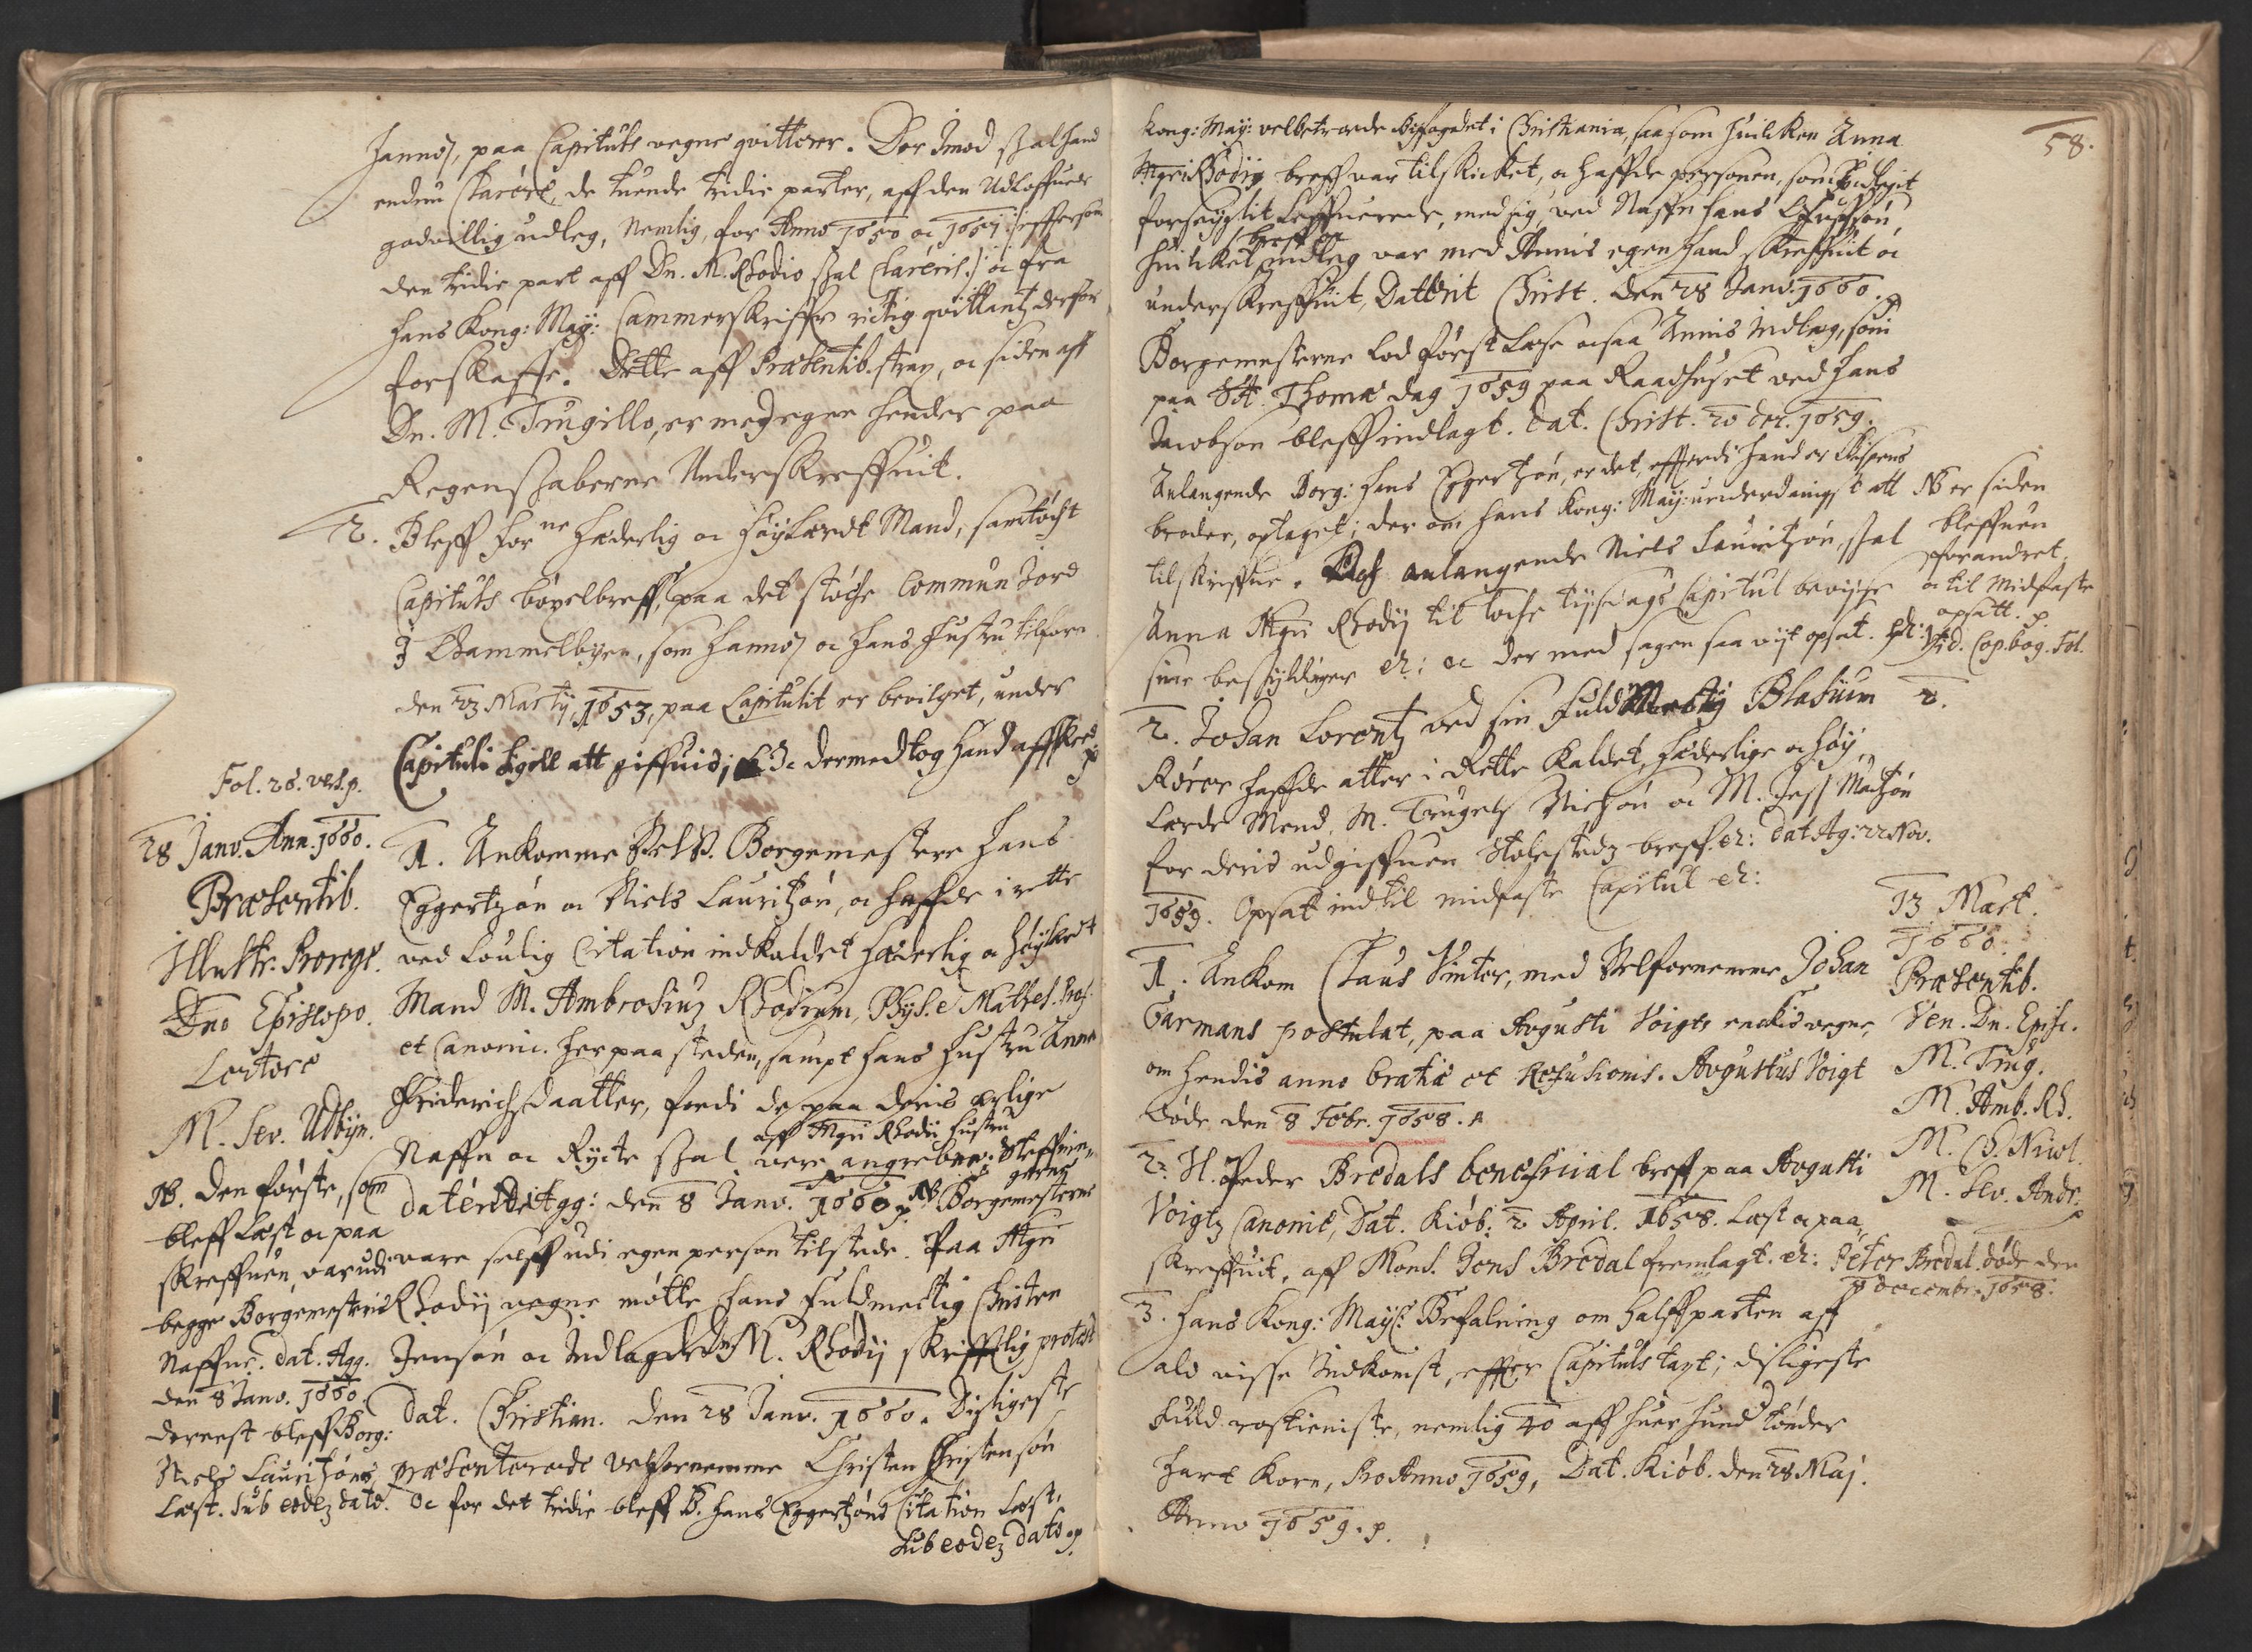 Jannes, paa Capituls vegne qvitterer. Der Imod skal hand
endnu Clarere, de tuende tridie parter, aff den Udloffuede
godvillig udleg, Nemlig, for Anno 1650 oc 1651 /: effterson
den tridie part aff Dn. M. Rhodio skal Clareris :/ oc fra
Hans Kong: May: Cammerskriffr rictig qvittantz derfor
forskaffe. Dette aff Præsentib. strax, oc siden aff
Dn. M. Trugillo, er med egne hender paa
Regenskaberne Underskreffuit.
2. Bleff for ne Hæderlig oc Høylærde Mand, samtøcht
Capituls bøxelbreff, paa det støche Commun Jord
I Gammelbyen, som hannes oc hans Hustru tilforn
den 23 Martij, 1653, paa Capitulit er bevilget, under
Capituli Sigell att giffuis; Oc dermed tog hand affskeed
Fol. 26. vers. p.
28 Janv. Ann. 1660.
Præsentib.
Illustr. Prorege.
Dno Episcopo.
Lectore
M. Sev. Udbyn.
NB. Den første, som
bleff læst oc paa
skreffuen, var udi
begge Borgemesteris
Naffne. dat. Agg.
den 8 Janv. 1660.
dernest bleff Borg:
Niels Lauritzøns
læst. sub eodez dato.
1. Ankomme Velv. Borgemestere Hans
Eggertzøn oc Niels Lauritzøn, oc haffde i rette
ved Loulig Citation indkaldet Hæderlig oc Høylærdt
Mand M. Ambrosiuz Rhodium, Phys. e Mathes. Prof.
et Canonic. her paa steden, sampt hans Hustru Anna
Friderichsdaatter, fordi de paa deris ærlige
Naffn oc Rycte skal aff Mgri Rhodii hustru
vere angreben. Steffnin-
gerne
daterit Agg: den 8 Janv. 1660. NB Borgemesterne
vare selff udi egen person tilstede. Paa Mgri
Rhodij vegne møtte hans fuldmectig Christen
Jensøn oc Indlagde M. Rhodij skrifftlig protest
dat. Christian. den 28 Janv. 1660. Disligeste
præsenterede velfornemme Christen Christensøn
Oc for det tridie bleff B. Hans Eggertzøns Citation læst,
sub eodez dato p.
58.
Kong: May: velbetroede Byfoget i Christiania, saasom huilken Anna
Mgri Rhodij breff var tilskicket, oc haffde personen, som Indlegit
forseyglit leffuerede, med sig, ved Naffn Hans Oluffsøn
huilket breff oc indleg var med Annis egen Haand skreffuit oc
underskreffuit, Daterit Christ. den 28 Janv. 1660.
Borgemesterne lod først læse ocsaa Annis Indleg, som
paa St. Thomæ dag 1659 paa Raadhuset ved Hans
Jacobsøn bleff indlagt. dat. Christ. 20 dec. 1659.
Anlangende Borg: Hans Eggertzøn, er det, effterdi hand er Bispens
broder, optaget; der om Hans Kong: May: underdanigst att
tilskriffue. Och anlangende Niels Lauritzøn, skal
Anna Mgri Rhodij til Torsse tiisdags Capitul bevisse
sine beskyldinger etc: oc der med sagen saa vijt opsat. etc:
NB er siden
bleffuen
forandret,
oc til Midfaste
opsatt. p.
Vid. Cop. bog. Fol.
2.
2. Johan Lorentz ved sin Fuldmectig Blasium
Rører haffde atter i Rette kaldet, hæderlige oc høy,,
lærde Mend, M. Trugels Nielsøn oc M. Jess Madtzøn
for deris udgiffuen Stolestedz breff. etc: dat Ag: 22 Nov.
1659. Opsat indtil midfaste Capitul etc:
1. Ankom Claus Vinter, med Velfornemme Johan
Garmans postulat, paa Avgusti Voigts enckis vegne,
om hendis anno Gratiæ et Refusionis. Avgustus Voigt
døde den 8 Febr. 1658. p
13 Mart.
1660.
Præsentib.
Ven. Dn. Episc.
M. Trug.
M. Amb. Rh.
M. Ch. Nicol.
M. Sev. Andr.
2. H. Peder Bredals beneficial breff paa Avgusti
Voigtz Canonie, Dat. Kiøb: 2 April. 1658. Læst oc paa,,
skreffuit, aff Mons. Jens Bredal fremlagt. etc: Peter Bredal døde den
9 Decembr. 1658.
3. Hans Kong: Mayts Befalning om halffparten aff
ald visse Indkomst, effter Capituls taxt; disligeste
fuld rostieniste, nemlig 40 aff huer hund. tønder
Hart Korn, Pro Anno 1659, Dat. Kiøb. den 28 Maj.
Anno 1659. p.